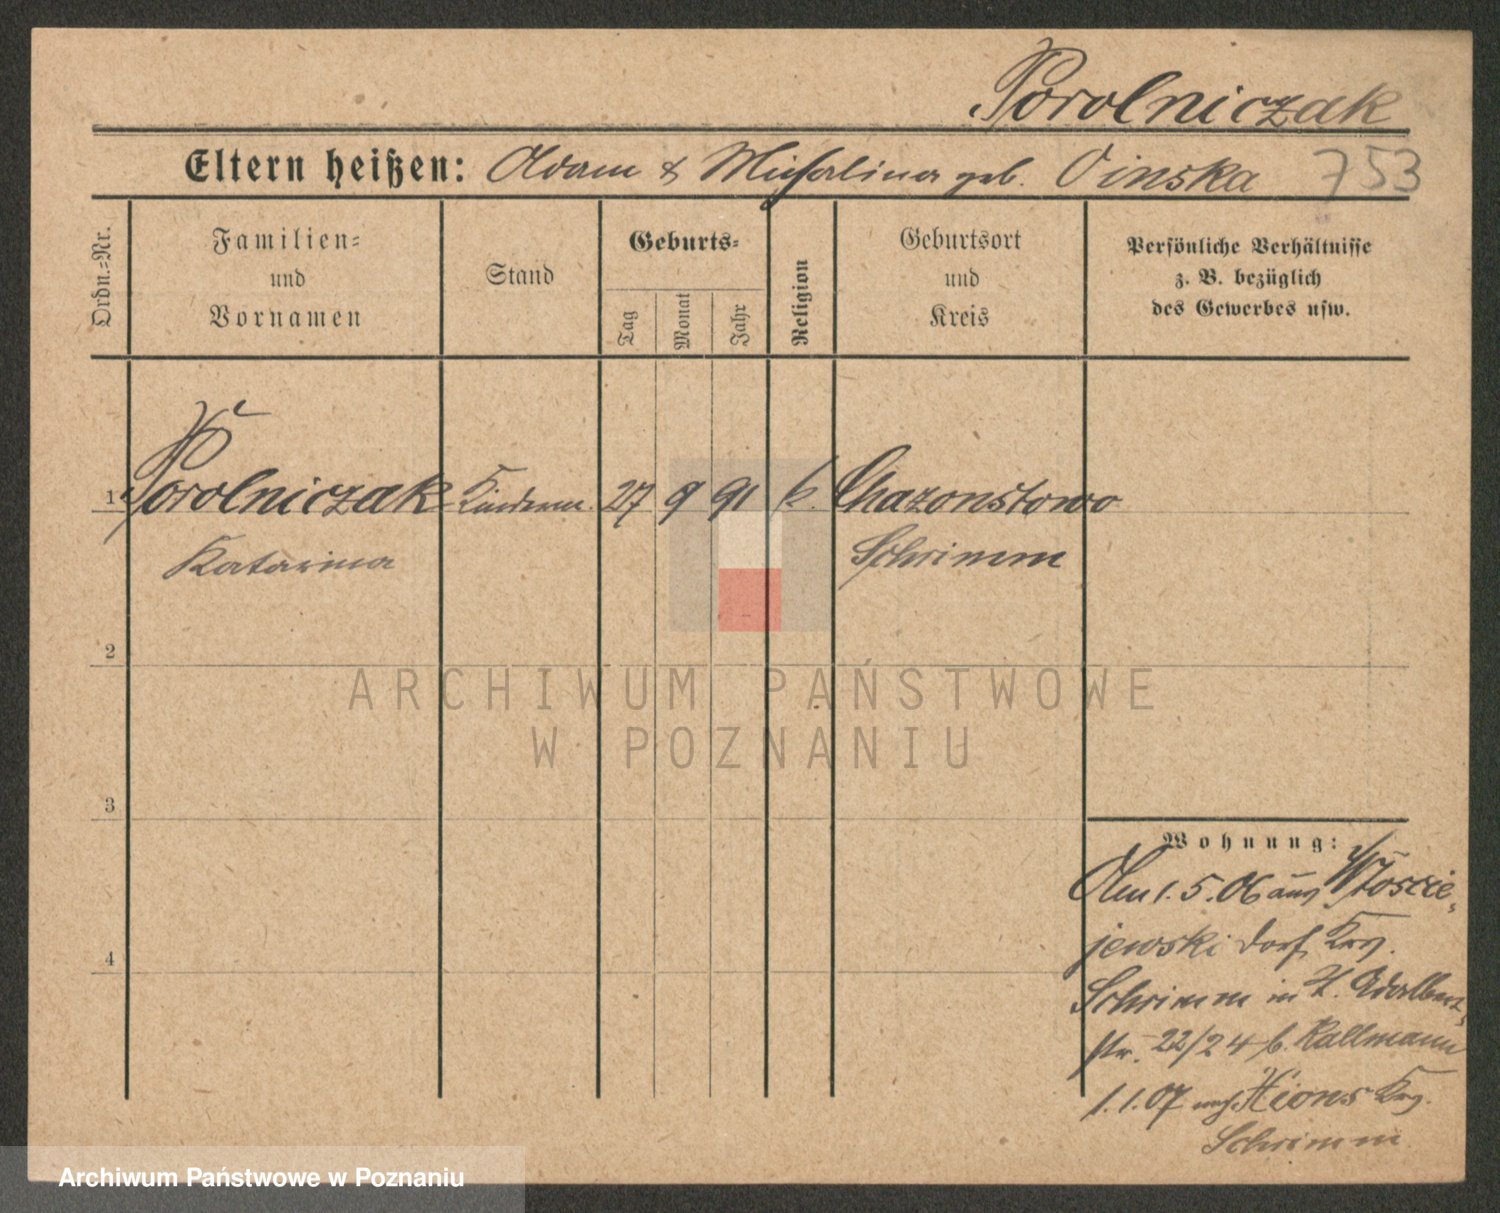 Porolniczak
Eltern heißen: Adam & Michalina geb. Oinska 753
Ordn.-Nr.
Familien-
und
Vornamen
Stand
Geburts-
Tag
Monat
Jahr
Religion
Geburtsort
und
Kreis
Persönliche Verhältnisse
z. B. bezüglich
des Gewerbes usw.
1 Porolniczak Kinderm. 27 9 91 k. Chazonstowo
Katarina Schrimm
2
ARCHIWUM PAŃSTWOWE
W POZNANIU
3
Wohnung:
Am 1.5.06 aus Wloscie-
jewski Dorf, Krs.
4
Schrimm in H. Adalbert-
str. 22/24 b. Kallmann
1.1.07 nach Xions Krs.
Schrimm
Archiwum Państwowe w Poznaniu